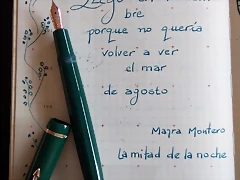 bre
porque no quería
volver a ver
el mar
de agosto
Mayra Montero
La mitad de la noche